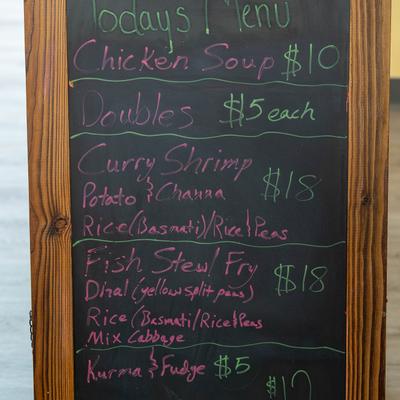 Todays Menu
Chicken Soup $10
Doubles $5 each
Curry Shrimp
Potato & Channa $18
Rice (Basmati)/Rice & Peas
Fish Stew/ Fry
Dhal (yellow split peas) $18
Rice (Basmati/Rice & Peas
Mix Cabbage
Kurma & Fudge $5